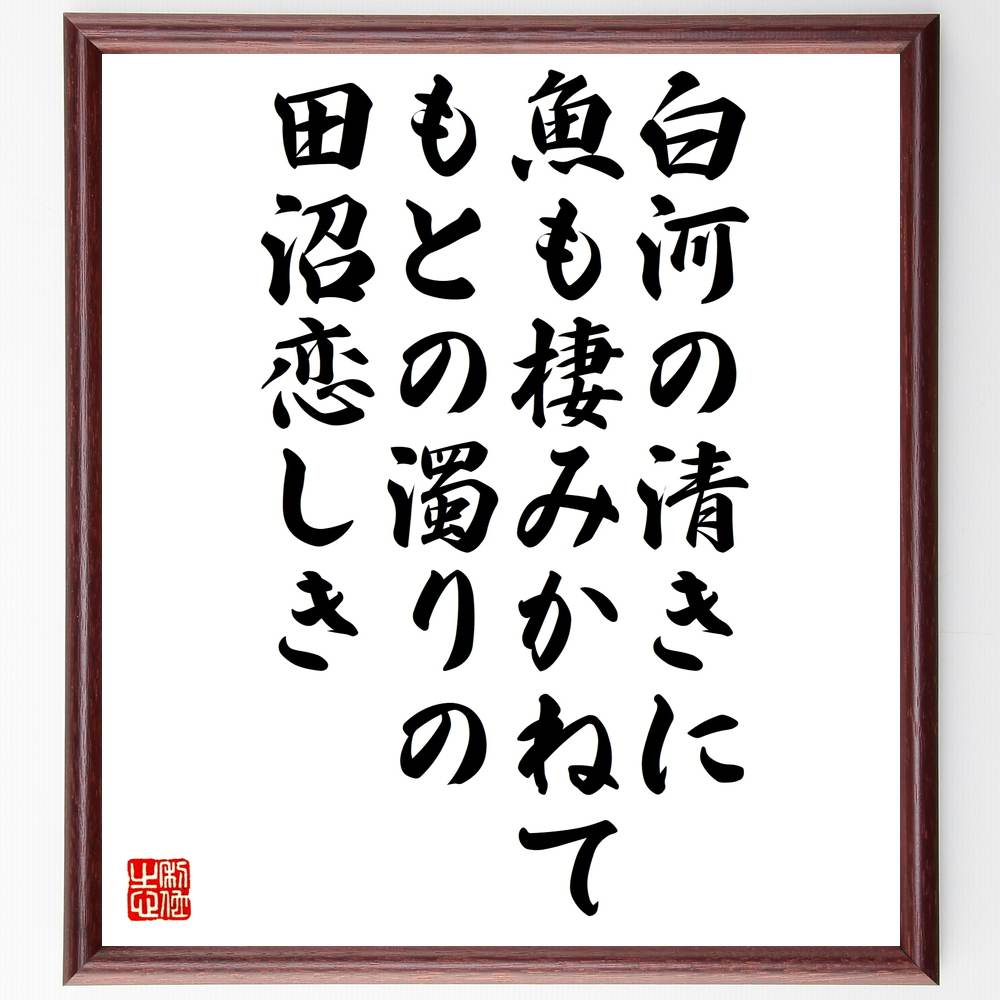 白河の清きに
魚も棲みかねて
もとの濁りの
田沼恋しき